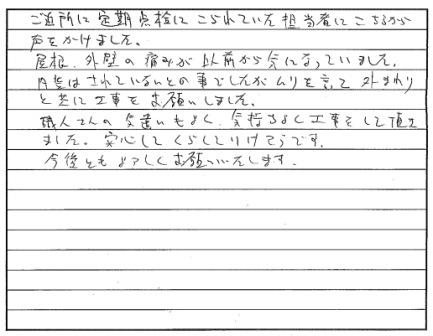 ご近所に定期点検にこられていた担当者にこちらから
声をかけました。
屋根、外壁の痛みが以前から気になっていました。
内装はされていないとの事でしたがムリを言って外まわり
と共に工事をお願いしました。
職人さんの気遣いもよく、気持ちよく工事をして頂き
ました。安心してくらしていけそうです。
今後ともよろしくお願いいたします。